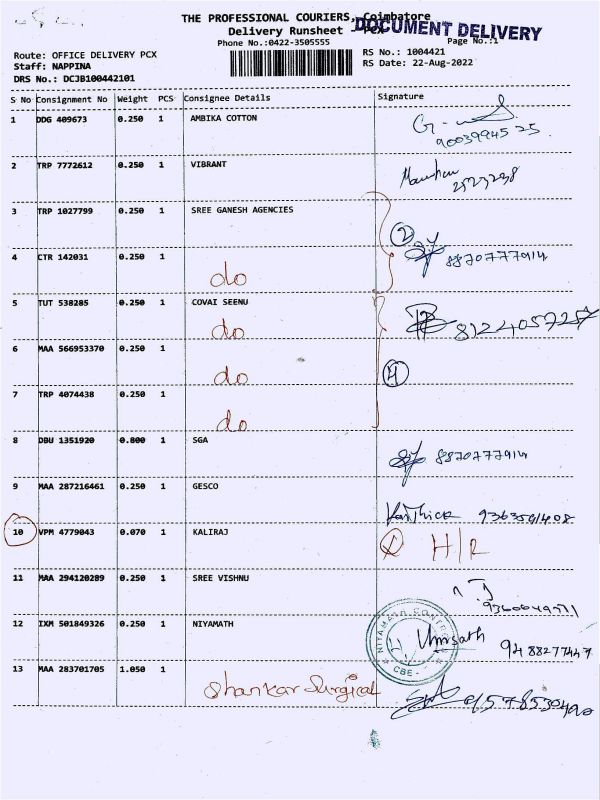 THE PROFESSIONAL COURIERS, Coimbatore
Delivery Runsheet - PCX
DOCUMENT DELIVERY
Phone No.:0422-3505555
Page No.:1
Route: OFFICE DELIVERY PCX
RS No.: 1004421
Staff: NAPPINA
RS Date: 22-Aug-2022
DRS No.: DCJB100442101
S No Consignment No Weight PCS Consignee Details Signature
1 DDG 409673 0.250 1 AMBIKA COTTON
9003994525
2 TRP 7772612 0.250 1 VIBRANT
3 TRP 1027799 0.250 1 SREE GANESH AGENCIES
2
4 CTR 142031 0.250 1 do 8870777914
5 TUT 538285 0.250 1 COVAI SEENU
do 8124057257
6 MAA 566953370 0.250 1 do
4
7 TRP 4074438 0.250 1 do
8 DBU 1351920 0.800 1 SGA 8870777914
9 MAA 287216461 0.250 1 GESCO
Karthick 9363591408
10 VPM 4779043 0.070 1 KALIRAJ
H/R
11 MAA 294120289 0.250 1 SREE VISHNU
12 IXM 501849326 0.250 1 NIYAMATH
CBE
9488277447
13 MAA 283701705 1.050 1 Shankar Surgical